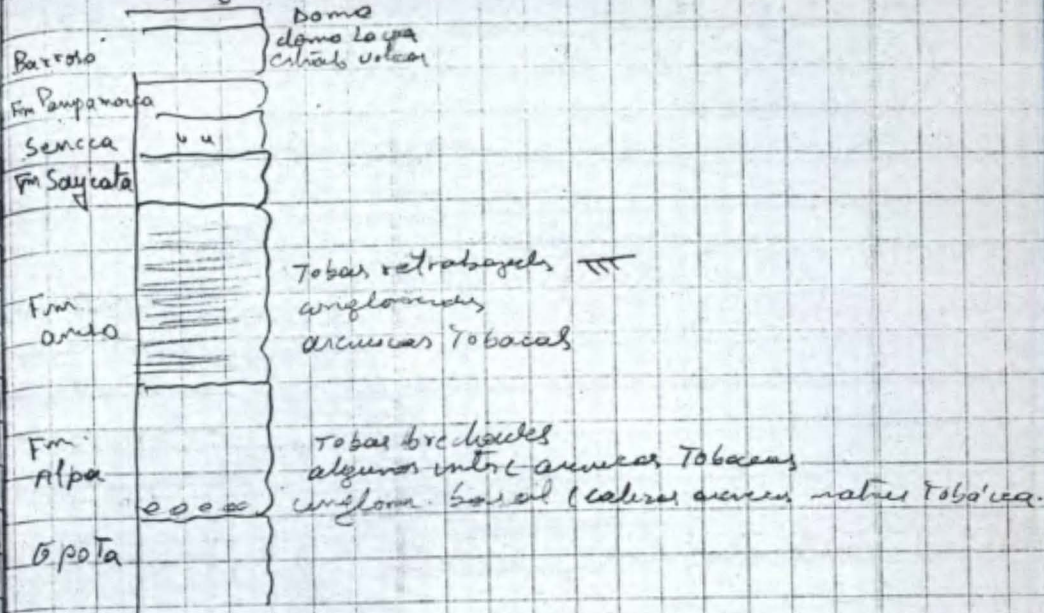 Domo
domo lava
Barroso
Fm Pampamarca
Sencca
Fm Saycata
Tobas retrabajads
Fm
areniscas Tobaceas
Fm.
Alpa
Tobas brechades
algunos inter areniscas Tobaceas
conglom. basal (calizas arenisc matriz Tobácea.
G pota